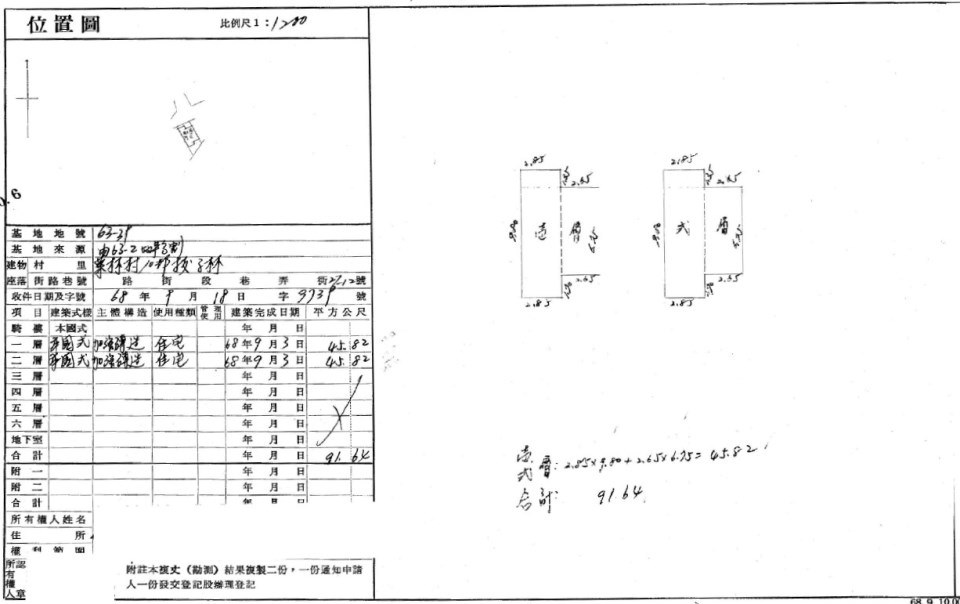 位置圖 比例尺1:1200
基地地號 63-39
基地來源 由63-2
建物村里
座落街路巷號 路街段巷弄街 號
收件日期及字號 68年9月18日 字9739號
項目 建築式樣 主體構造 使用種類 管理使用 建築完成日期 平方公尺
騎樓 本國式 年月日
一層 本國式 加強磚造 住宅 68年9月3日 45.82
二層 本國式 加強磚造 住宅 68年9月3日 45.82
三層 年月日
四層 年月日
五層 年月日
六層 年月日
地下室 年月日
合計 年月日 91.64
附一 年月日
附二 年月日
合計 年月日
所有權人姓名
住所
權利範圍
所認有權人章
附註本複丈(勘測)結果複製二份,一份通知申請
人一份發交登記股辦理登記
2.85 2.65
9.80 壹層 6.75
2.65
2.85
2.85 2.65
9.80 弍層 6.75
2.65
2.85
壹弍層:2.85×9.80+2.65×6.75=45.82
合計: 91.64
68.9.10.00